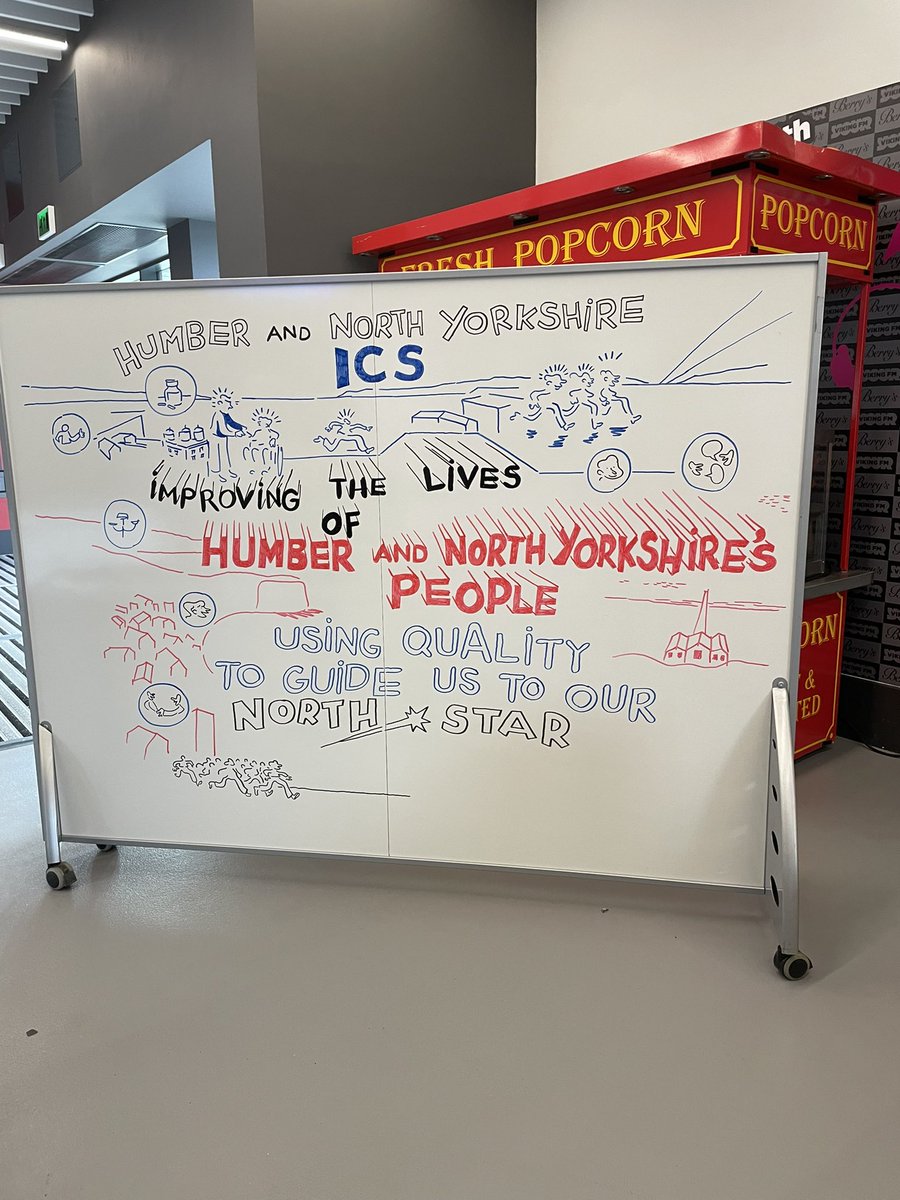 HUMBER AND NORTH YORKSHIRE
ICS
IMPROVING THE LIVES
OF
HUMBER AND NORTH YORKSHIRE'S
PEOPLE
USING QUALITY
TO GUIDE US TO OUR
NORTH STAR
FRESH POPCORN
POPCORN
ORN
&
TED
th
Berry's
VIKING FM